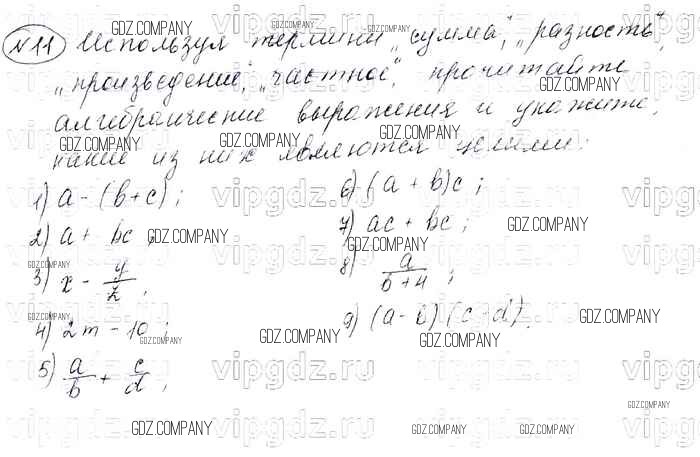 №11 Используя термины „сумма", „разность",
„произведение", „частное", прочитайте
алгебраические выражения и укажите,
какие из них являются целыми:
1) a - (b+c);
2) a + bc
3) x - y/z,
4) 2m - 10;
5) a/b + c/d,
6) (a + b)c;
7) ac + bc;
8) a/(b+4);
9) (a-b)(c+d).
GDZ.COMPANY
vipgdz.ru